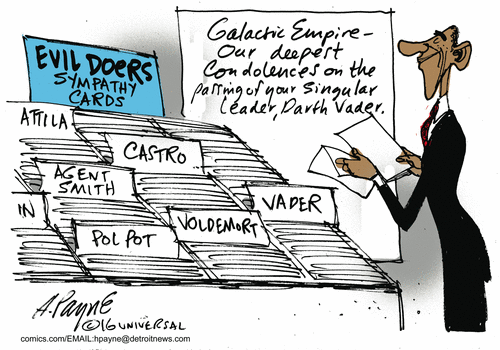 Galactic Empire—
Our deepest
Condolences on the
passing of your Singular
Leader, Darth Vader.
EVIL DOERS
SYMPATHY
CARDS
ATTILA
CASTRO
AGENT
SMITH
VADER
IN
VOLDEMORT
POL POT
H.PAYNE
©16 UNIVERSAL
comics.com/EMAIL:hpayne@detroitnews.com